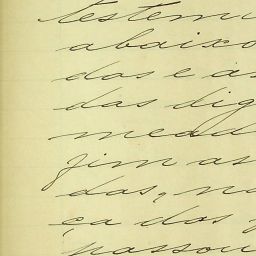 testem
abaixo
dos e as
das dig
mead
fim as
das, na
ça dos
passou